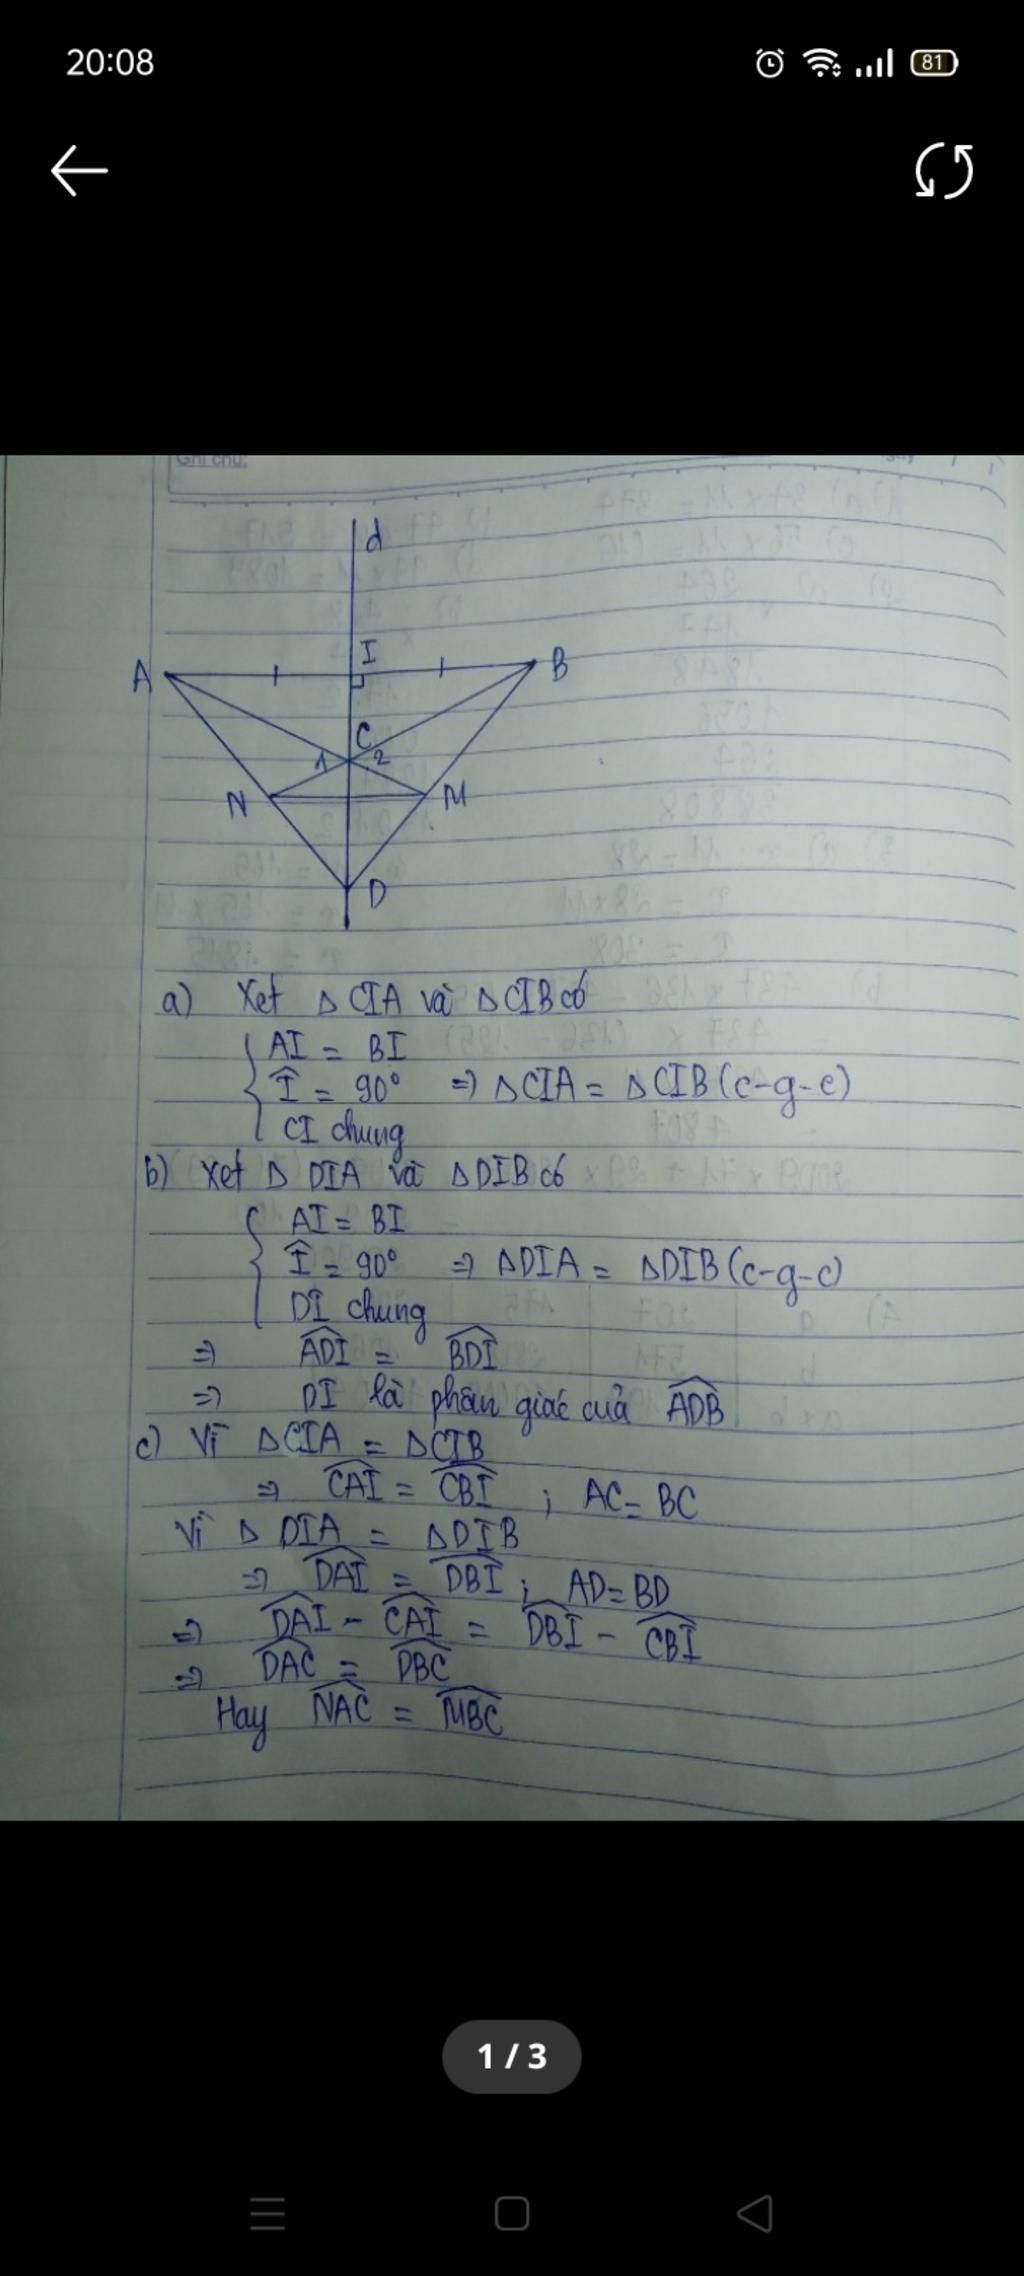 20:08
81
Ghi chú:
d
A
I
B
C
1
2
N
M
D
a) Xét Δ CIA và Δ CIB có
AI = BI
Î = 90° => Δ CIA = Δ CIB (c-g-c)
CI chung
b) Xét Δ DIA và Δ DIB có
AI = BI
Î = 90° => Δ DIA = Δ DIB (c-g-c)
DI chung
=> \widehat{ADI} = \widehat{BDI}
=> DI là phân giác của \widehat{ADB}
c) Vì Δ CIA = Δ CIB
=> \widehat{CAI} = \widehat{CBI} ; AC = BC
Vì Δ DIA = Δ DIB
=> \widehat{DAI} = \widehat{DBI} ; AD = BD
=> \widehat{DAI} - \widehat{CAI} = \widehat{DBI} - \widehat{CBI}
=> \widehat{DAC} = \widehat{DBC}
Hay \widehat{NAC} = \widehat{MBC}
1 / 3